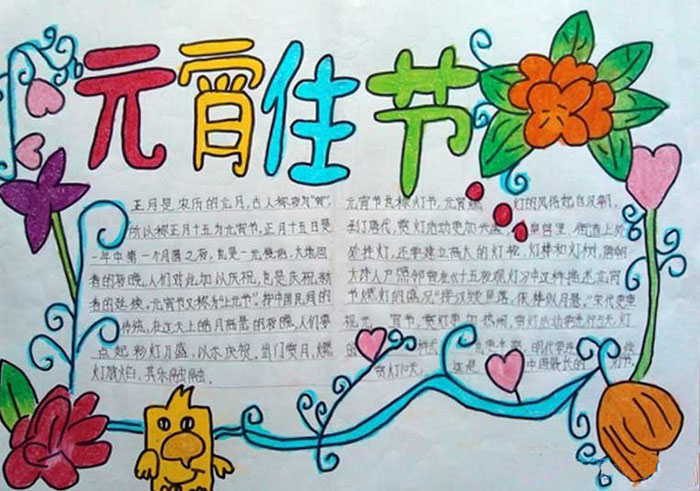 元宵佳节
正月是农历的元月，古人称夜为"宵"，
所以称正月十五为元宵节。正月十五日是
一年中第一个月圆之夜，也是一元复始，大地回
春的夜晚，人们对此加以庆祝，也是庆祝新
春的延续。元宵节又称为"上元节"。按中国民间的
传统，在这天上皓月高悬的夜晚，人们要
点起彩灯万盏，以示庆贺。出门赏月、燃
灯放焰、其乐融融。
元宵节也称灯节，元宵燃灯的风俗起自汉朝，
到了唐代，赏灯活动更加兴盛，皇宫里、街道上处
处挂灯，还要建立高大的灯轮、灯楼和灯树，唐朝
大诗人卢照邻曾在《十五夜观灯》中这样描述元宵
节燃灯的盛况"接汉疑星落，依楼似月悬。"宋代更重
视元宵节，赏灯更加热闹，赏灯活动要进行5天，灯
的样式也更丰富。明代要连续
赏灯10天，这是中国最长的灯节。